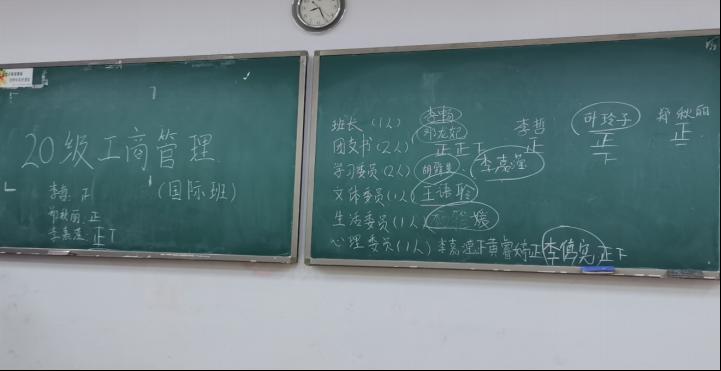 20级工商管理
(国际班)
李哲: 正
郑秋丽: 正
李嘉滢: 正丅
班长 (1人)
团支书 (2人) 正正丅 李哲 正 叶玲子 正丅 郑秋丽 正
学习委员 (2人) 李嘉滢
文体委员 (1人) 王语聆
生活委员 (1人) 媛
心理委员 (1人) 李嘉滢正黄睿婷正李倩宛正下